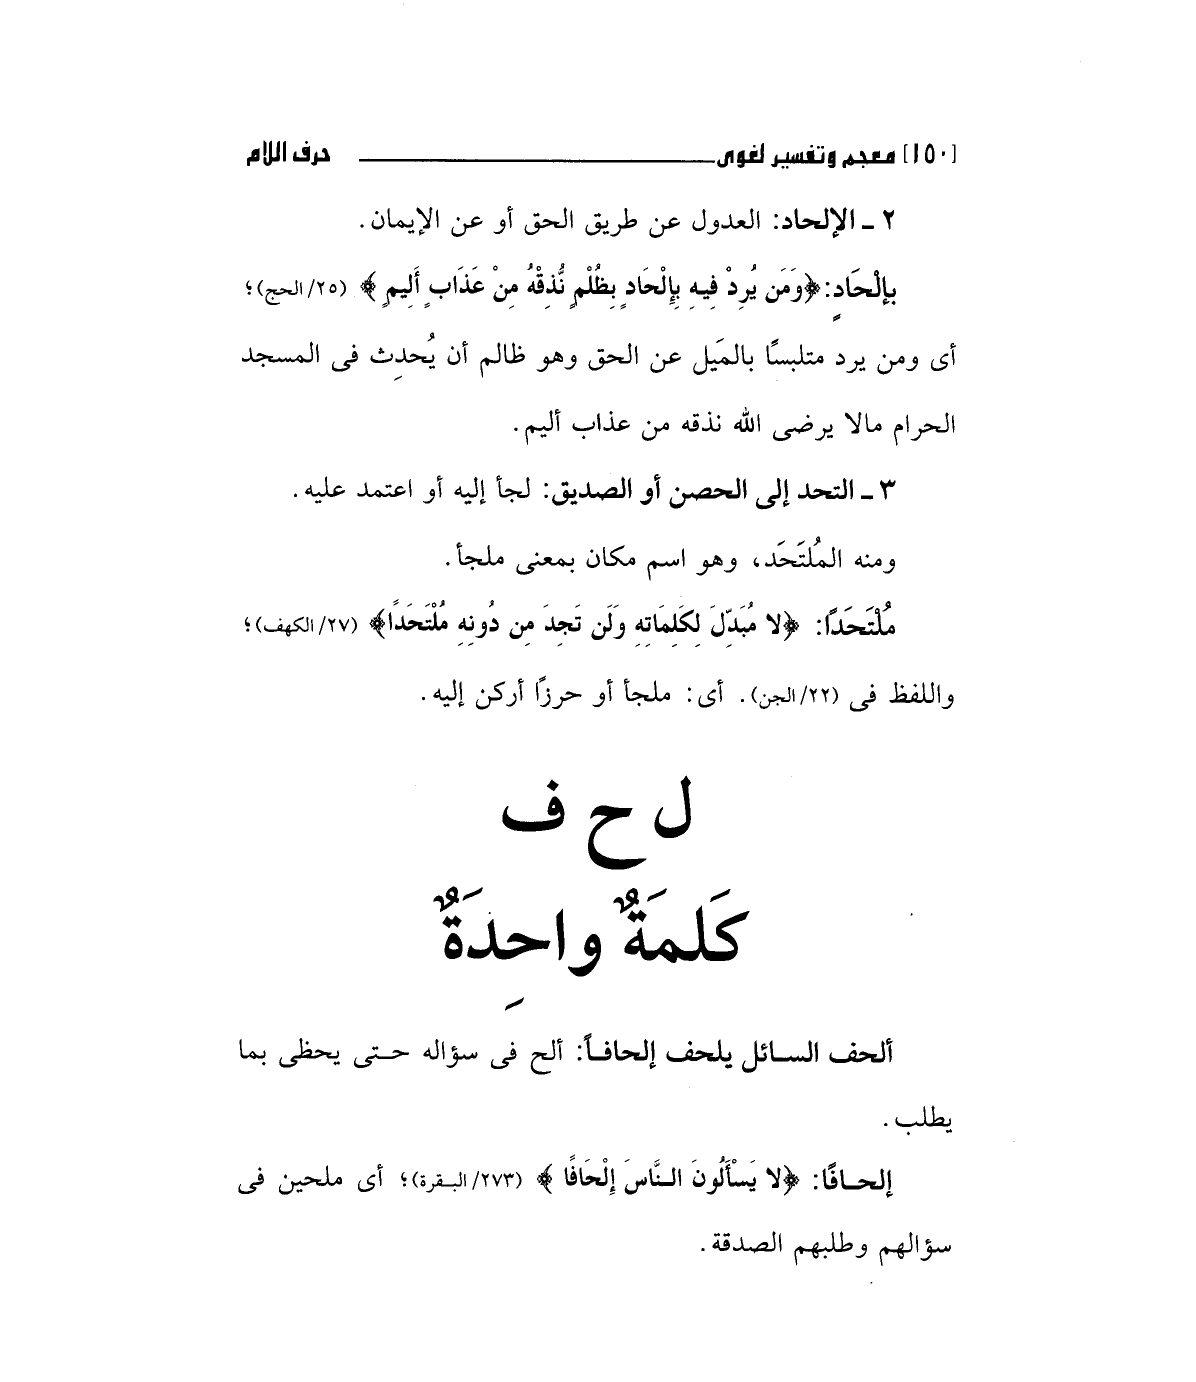 [١٥٠] معجم وتفسير لغوى ــــــــــــ حرف اللام
٢ ـ الإلحاد: العدول عن طريق الحق أو عن الإيمان.
بإلْحَادٍ: ﴿وَمَن يُرِدْ فِيهِ بِإِلْحَادٍ بِظُلْمٍ نُّذِقْهُ مِنْ عَذَابٍ أَلِيمٍ﴾ (٢٥/الحج)؛
أى ومن يرد متلبسًا بالمَيل عن الحق وهو ظالم أن يُحدِث فى المسجد
الحرام مالا يرضى الله نذقه من عذاب أليم.
٣ ـ التحد إلى الحصن أو الصديق: لجأ إليه أو اعتمد عليه.
ومنه المُلتَحَد، وهو اسم مكان بمعنى ملجأ.
مُلْتَحَدًا: ﴿لا مُبَدِّلَ لِكَلِمَاتِهِ وَلَن تَجِدَ مِن دُونِهِ مُلْتَحَدًا﴾ (٢٧/الكهف)؛
واللفظ فى (٢٢/الجن). أى: ملجأ أو حرزًا أركن إليه.
ل ح ف
كَلمَةٌ واحِدَةٌ
ألحف السائل يلحف إلحافاً: ألح فى سؤاله حتى يحظى بما
يطلب.
إلحافًا: ﴿لا يَسْأَلُونَ النَّاسَ إِلْحَافًا﴾ (٢٧٣/البقرة)؛ أى ملحين فى
سؤالهم وطلبهم الصدقة.